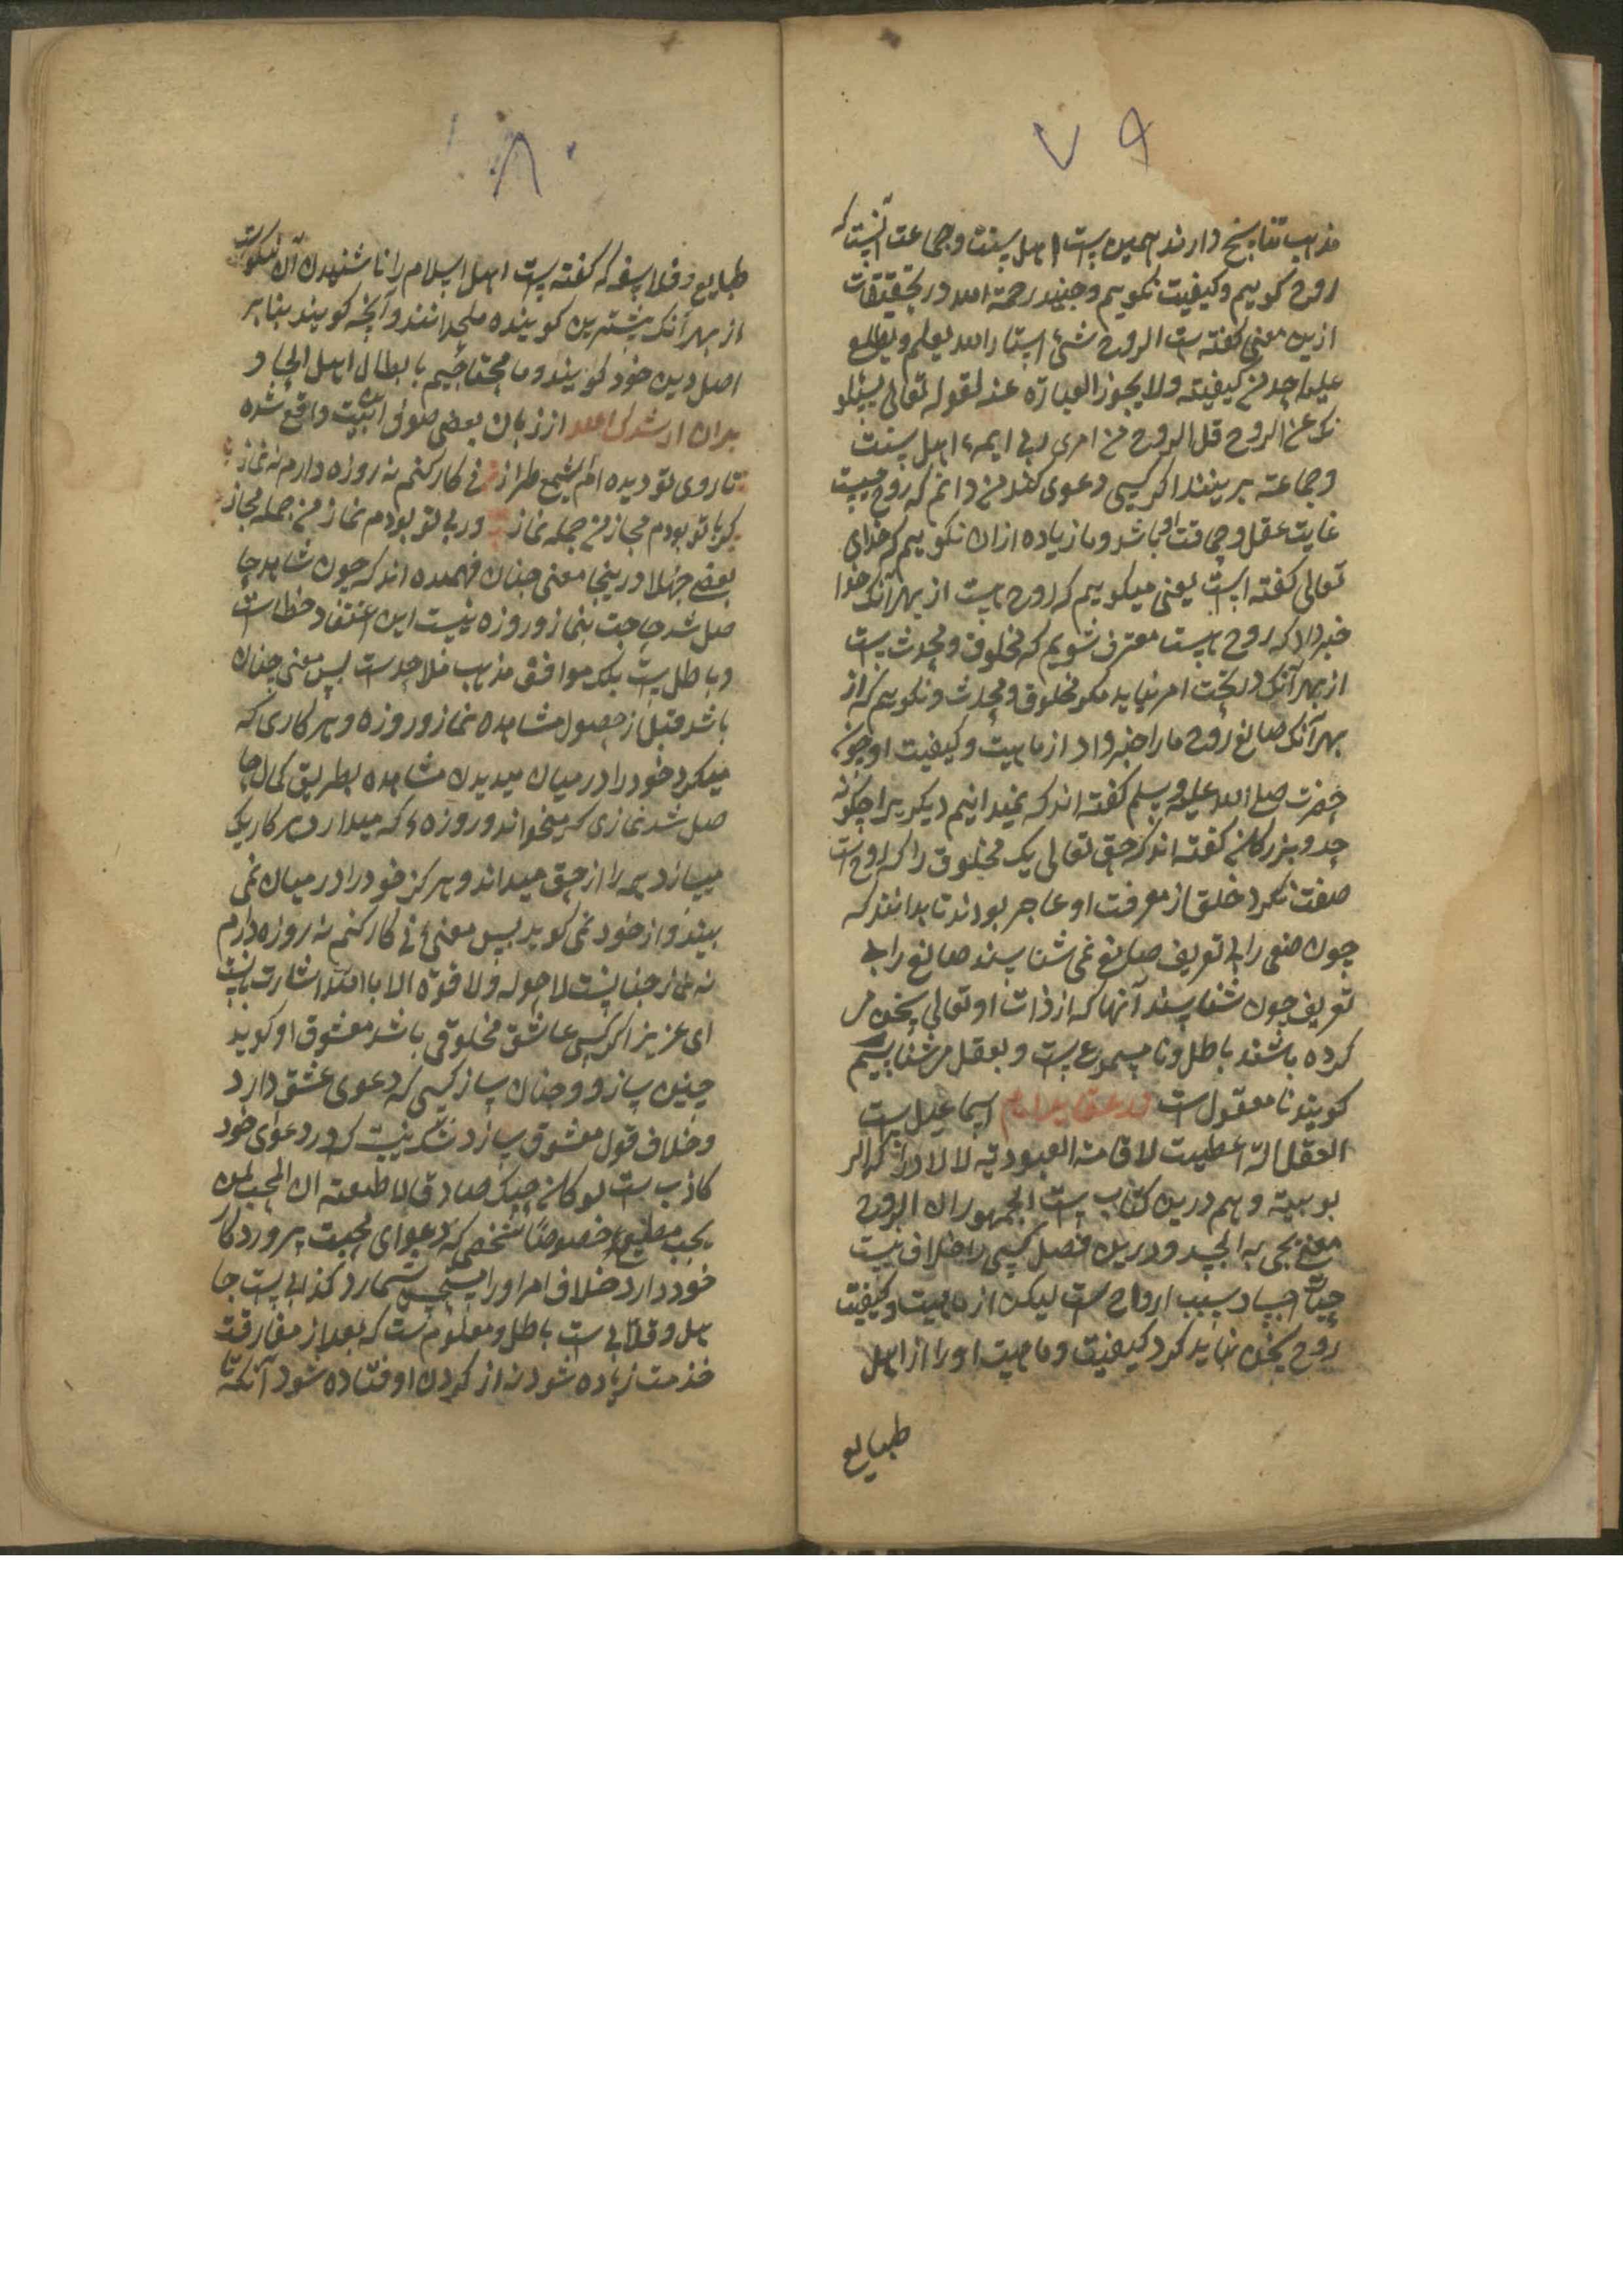 ۷۹
مذهب تناسخ دارند همین است اهل سنت و جماعت آنست که
روح کوییم و کیفیت نکوییم و جنید رحمة الله در تحقیقات
ازین معنی کفته است الروح شیٔ استاثر الله بعلمه و لم یطلع
علیه احد من کیفیته ولا یجوز العبارة عنه لقوله تعالی یسئلو
نک عن الروح قل الروح من امر ربی ایمهٔ اهل سنت
و جماعت برینند اکر کسی دعوی کند من دانم که روح چیست
غایت عقل و حماقت باشد و ما زیاده ازان نکوییم که خدای
تعالی کفته است یعنی میکوییم که روح هست از بهر آنک خدا
خبر داد که روح هست معترف شویم که مخلوق و محدث است
از بهر آنک در تحت امر نیاید مکر مخلوق و محدث و نکوییم که از
بهر آنک صانع روح ما را خبر نداد از ماهیت و کیفیت او چون
حضرت صلی الله علیه و سلم کفته اند که نمیدانیم دیکریرا چکونه
حد و بزرکان کفته اند که حق تعالی یک مخلوق را که روح است
صفت نکرد خلق از معرفت او عاجز بودند تا بدانند که
چون صنعی را بی تعریف صانع نمی شناسند صانع را بی
تعریف چون شناسند آنها که از ذات او تعالی سخن
کرده باشند باطل و نا مسموع است و بعقل مر شناسیم
کویند نا معقول است در عقاید امام اسماعیل است
العقل آلة اعطیت لاقامة العبودیة لا لادراک الر
بوبیة و هم درین کتاب است الجمهور ان الروح
معنی یحیی به الجسد و درین فصل کسی را خلاف نیست
حیات اجساد بسبب ارواح است لیکن از ماهیت و کیفیت
روح سخن نباید کرد کیفیت و ماهیت او را از اهل
طبایع
۸۰
طبایع و فلاسفه که کفته است اهل اسلام را نا شنیدن آن نیکوست
از بهر آنک بیشترین کوینده ملحدانند و آنچه کویند بنا بر
اصل دین خود کویند و ما محتاجیم بابطال اهل الحاد
بدان ارشدک الله از زبان بعضی صوفی این بیت واقع شده
تا روی تو دیده ام ای شمع طراز نی کار کنم نه روزه دارم نه نماز
کر با تو بودم مجاز من جمله نماز ور بی تو بودم نماز من جمله مجاز
بعضی جهلا درینجا معنی چنان فهمیده اند که چون مشاهده حا
صل شد حاجت بنماز و روزه نیست این اعتقاد خطاست
و باطل است بلکه موافق مذهب ملاحده است پس معنی چنان
باشد قبل از حصول مشاهده نماز و روزه و هر کاری که
میکرد خود را در میان میدیدن مشاهده بطریق کمال حا
صل شد نمازی که میخواند و روزهٔ که میدارد هر کار یک
میسازد همه را از حق میداند و هرکز خود را در میان نمی
بیند و از خود نمی کوید پس معنیٔ نی کار کنم نه روزه دارم
نه نماز چنانست لا حوله ولا قوة الا بالله اشارت باینست
ای عزیز اکر کسی عاشق مخلوقی باشد معشوق او کوید
چنین ساز و چنان ساز کسی که دعوی عشق دارد
و خلاف قول معشوق سازد شک نیست که در دعوی خود
کاذب است لو کان حبک صادقا لاطعته ان المحب لمن
یحب مطیع خصوصاً شخصی که دعوای محبت پروردکار
خود دارد خلاف امر او را مستحسن شمارد کذابی است جا
هل و قلابی است باطل و معلوم است که بعد از مفارقت
خدمت زیاده شود نه از کردن او فتاده شود آنکه تا